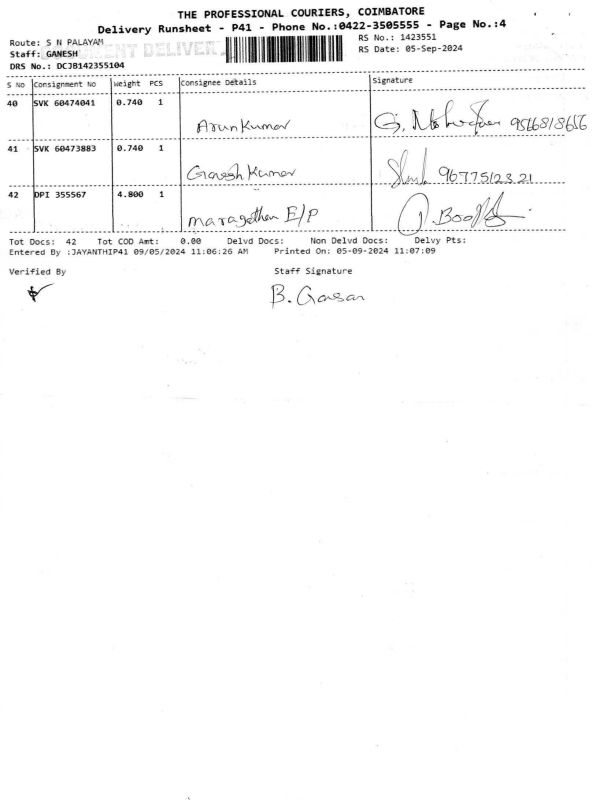 THE PROFESSIONAL COURIERS, COIMBATORE
Delivery Runsheet - P41 - Phone No.:0422-3505555 - Page No.:4
Route: S N PALAYAM
RS No.: 1423551
Staff: GANESH
RS Date: 05-Sep-2024
DRS No.: DCJB142355104
S No Consignment No Weight PCS Consignee Details Signature
40 SVK 60474041 0.740 1
Arunkumar G. 9566818656
41 SVK 60473883 0.740 1
Ganesh Kumar 9677512321
42 DPI 355567 4.800 1
maragathan E/P
Tot Docs: 42 Tot COD Amt: 0.00 Delvd Docs: Non Delvd Docs: Delvy Pts:
Entered By :JAYANTHIP41 09/05/2024 11:06:26 AM Printed On: 05-09-2024 11:07:09
Verified By Staff Signature
B.